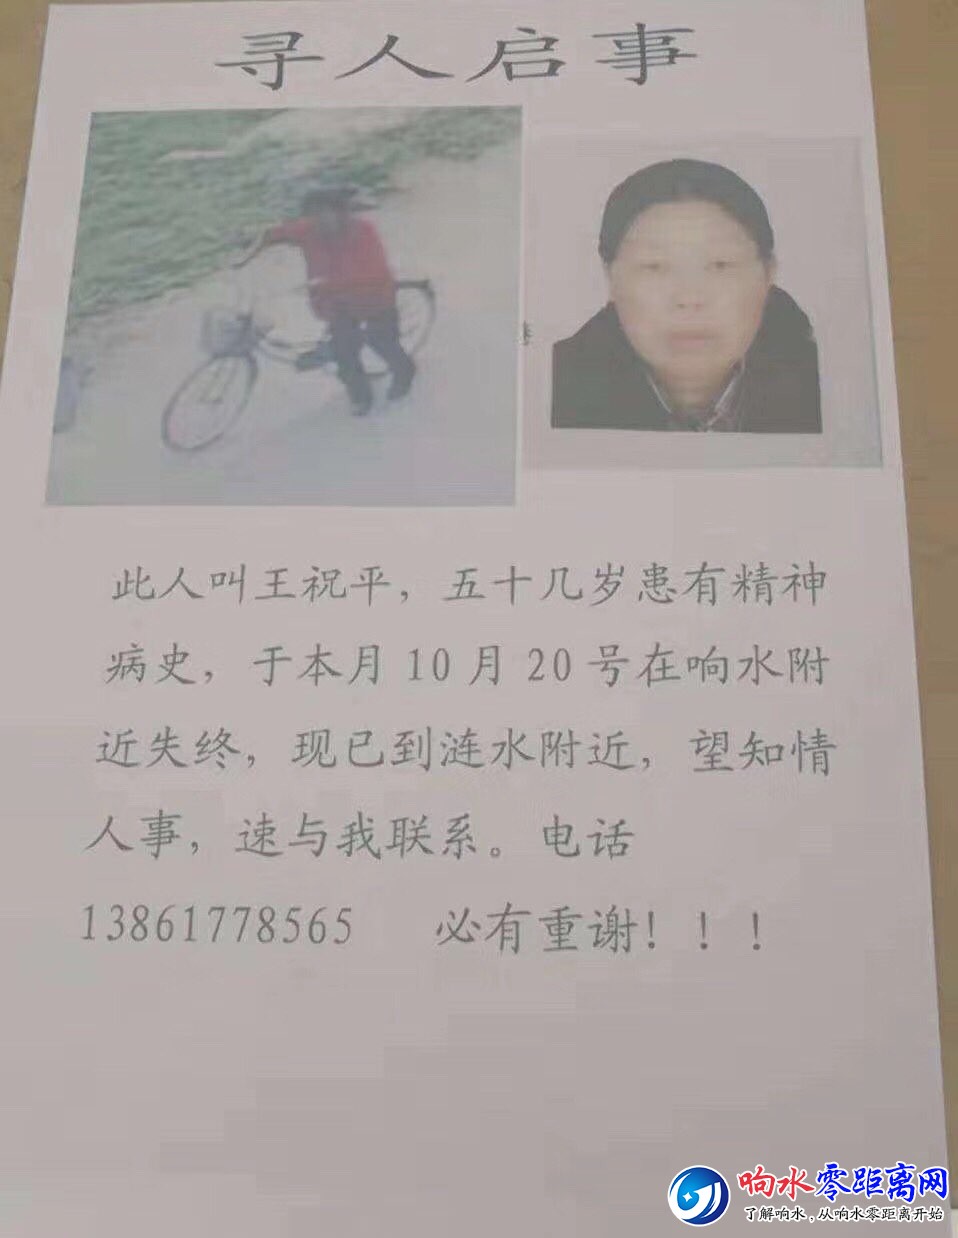 寻人启事
此人叫王祝平，五十几岁患有精神
病史，于本月10月20号在响水附
近失终，现已到涟水附近，望知情
人事，速与我联系。电话
13861778565 必有重谢！！！
响水零距离网
了解响水，从响水零距离开始